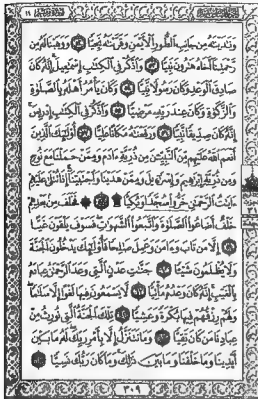 وَنَٰدَيْنَٰهُ مِن جَانِبِ ٱلطُّورِ ٱلْأَيْمَنِ وَقَرَّبْنَٰهُ نَجِيًّا ٥٢ وَوَهَبْنَا لَهُۥ مِن
رَّحْمَتِنَآ أَخَاهُ هَٰرُونَ نَبِيًّا ٥٣ وَٱذْكُرْ فِي ٱلْكِتَٰبِ إِسْمَٰعِيلَ إِنَّهُۥ كَانَ
صَادِقَ ٱلْوَعْدِ وَكَانَ رَسُولًا نَّبِيًّا ٥٤ وَكَانَ يَأْمُرُ أَهْلَهُۥ بِٱلصَّلَوٰةِ
وَٱلزَّكَوٰةِ وَكَانَ عِندَ رَبِّهِۦ مَرْضِيًّا ٥٥ وَٱذْكُرْ فِي ٱلْكِتَٰبِ إِدْرِيسَ
إِنَّهُۥ كَانَ صِدِّيقًا نَّبِيًّا ٥٦ وَرَفَعْنَٰهُ مَكَانًا عَلِيًّا ٥٧ أُو۟لَٰٓئِكَ ٱلَّذِينَ
أَنْعَمَ ٱللَّهُ عَلَيْهِم مِّنَ ٱلنَّبِيِّـۧنَ مِن ذُرِّيَّةِ ءَادَمَ وَمِمَّنْ حَمَلْنَا مَعَ نُوحٍ
وَمِن ذُرِّيَّةِ إِبْرَٰهِيمَ وَإِسْرَٰٓءِيلَ وَمِمَّنْ هَدَيْنَا وَٱجْتَبَيْنَآ إِذَا تُتْلَىٰ عَلَيْهِمْ
ءَايَٰتُ ٱلرَّحْمَٰنِ خَرُّوا۟ سُجَّدًا وَبُكِيًّا ۩ ٥٨ فَخَلَفَ مِنۢ بَعْدِهِمْ
خَلْفٌ أَضَاعُوا۟ ٱلصَّلَوٰةَ وَٱتَّبَعُوا۟ ٱلشَّهَوَٰتِ فَسَوْفَ يَلْقَوْنَ غَيًّا
٥٩ إِلَّا مَن تَابَ وَءَامَنَ وَعَمِلَ صَٰلِحًا فَأُو۟لَٰٓئِكَ يَدْخُلُونَ ٱلْجَنَّةَ
وَلَا يُظْلَمُونَ شَيْـًٔا ٦٠ جَنَّٰتِ عَدْنٍ ٱلَّتِي وَعَدَ ٱلرَّحْمَٰنُ عِبَادَهُۥ
بِٱلْغَيْبِ إِنَّهُۥ كَانَ وَعْدُهُۥ مَأْتِيًّا ٦١ لَّا يَسْمَعُونَ فِيهَا لَغْوًا إِلَّا سَلَٰمًا
وَلَهُمْ رِزْقُهُمْ فِيهَا بُكْرَةً وَعَشِيًّا ٦٢ تِلْكَ ٱلْجَنَّةُ ٱلَّتِي نُورِثُ مِنْ
عِبَادِنَا مَن كَانَ تَقِيًّا ٦٣ وَمَا نَتَنَزَّلُ إِلَّا بِأَمْرِ رَبِّكَ لَهُۥ مَا بَيْنَ
أَيْدِينَا وَمَا خَلْفَنَا وَمَا بَيْنَ ذَٰلِكَ وَمَا كَانَ رَبُّكَ نَسِيًّا ٦٤
٣٠٩